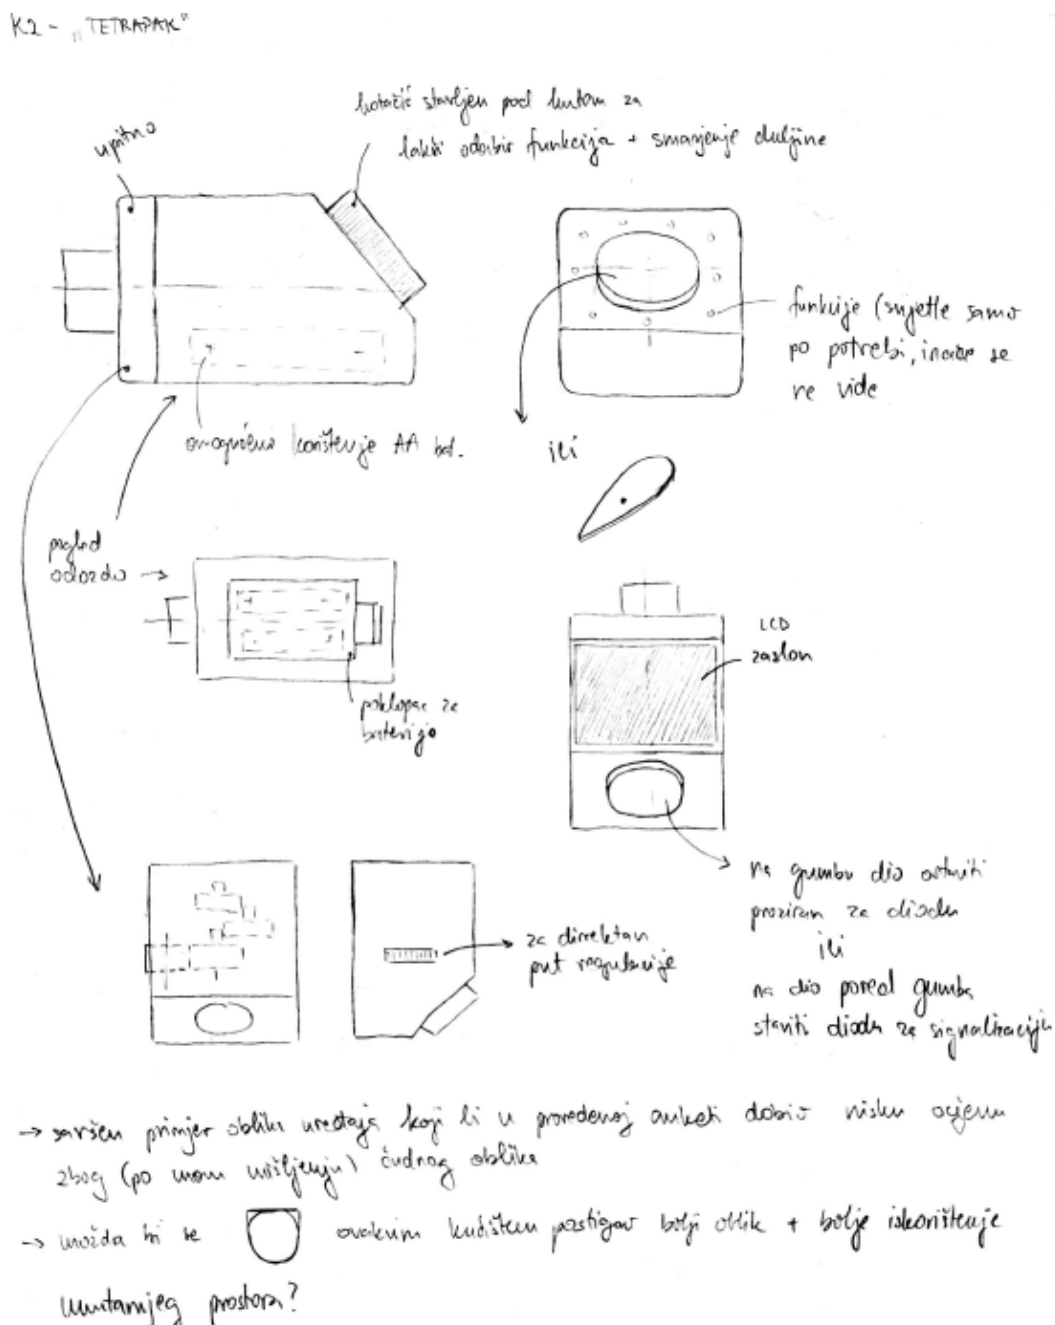 K2 - „TETRAPAK"
upitno
kotačić stavljen pod kutom za
lakši odabir funkcija + smanjenje duljine
funkcije (svjetle samo
po potrebi, inače se
ne vide
omogućeno korištenje AA bat.
ili
pogled
odozdo
LCD
zaslon
poklopac za
baterije
na gumbu dio ostaviti
proziran za diodu
ili
na dio pored gumba
staviti diodu za signalizaciju
za direktan
put regulacije
→ savršen primjer oblika uređaja koji bi u provedenoj anketi dobio nisku ocjenu
zbog (po mom mišljenju) čudnog oblika
→ možda bi se ovakvim kućištem postigao bolji oblik + bolje iskorištenje
unutarnjeg prostora?